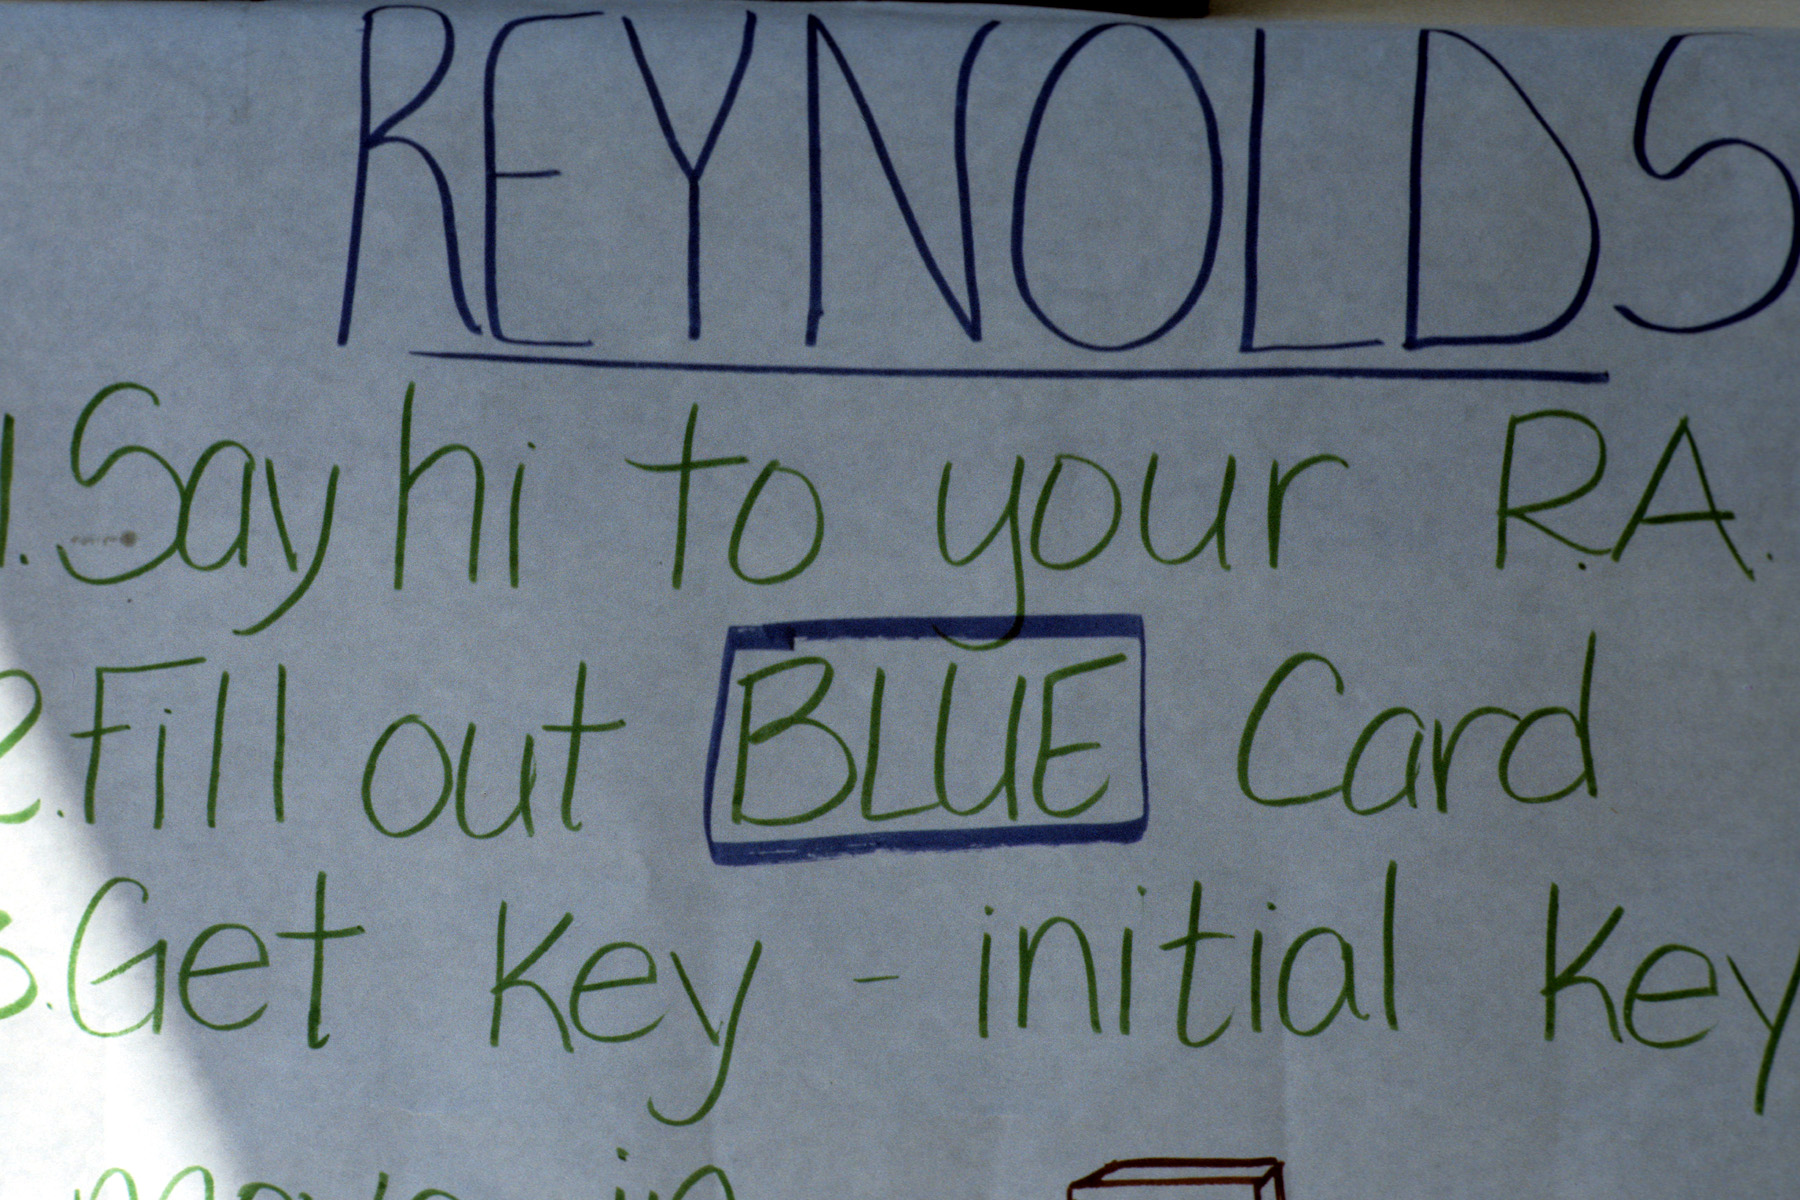 REYNOLDS
1. Say hi to your R.A.
2. Fill out BLUE Card
3. Get key - initial key
move in